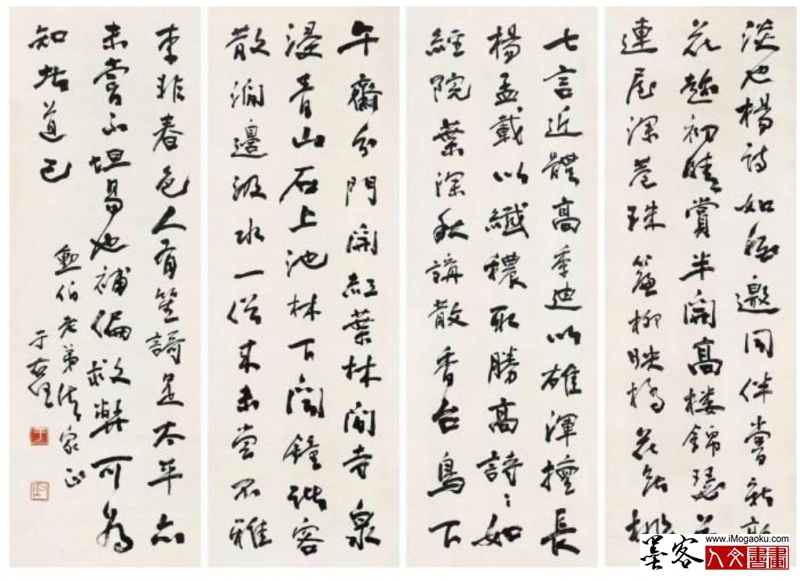 淡也楊詩如酒邀同伴嘗新熟
花趁初晴賞半開高樓錦瑟花
連屋深巷珠簾柳映橋花無桃
七言近體高季迪以雄渾擅長
楊孟載以纖穠取勝高詩々如
經院葉深秋講散香台鳥下
午齋分門開紅葉林間寺泉
浸青山石上池林下聞鐘諸客
散澗邊汲水一僧來未嘗不雅
李非春色人有笙謌是太平亦
未嘗不坦易也補偏救弊可為
知者道已
伯老弟法家正
于右任
墨客
www.iMogaoku.com
人文書畫